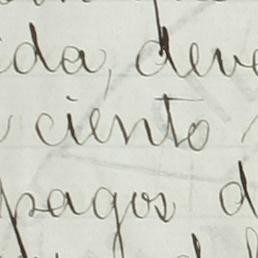 ida, deve
ciento
pagos d